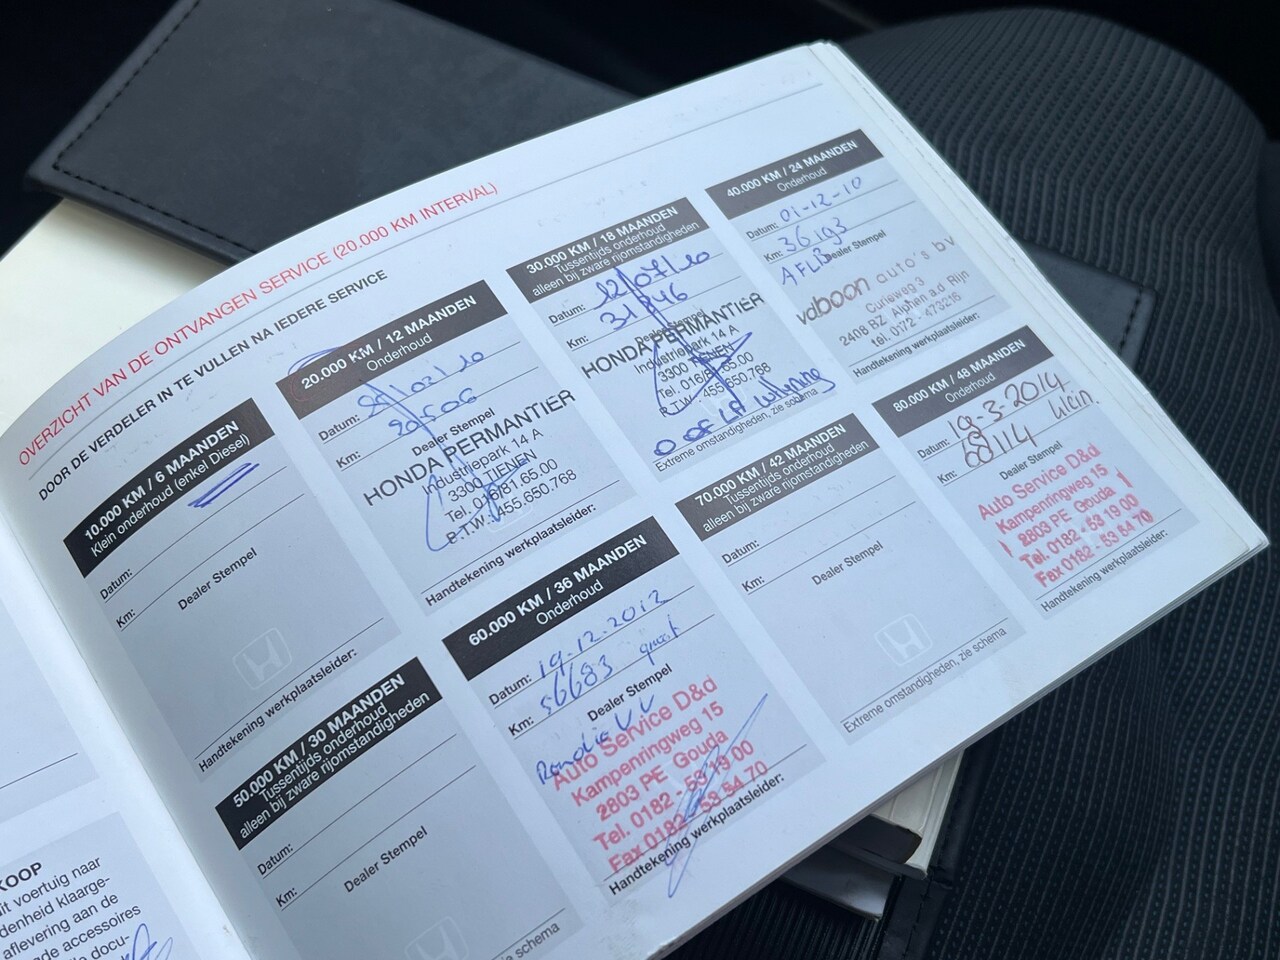 OVERZICHT VAN DE ONTVANGEN SERVICE (20.000 KM INTERVAL)
DOOR DE VERDELER IN TE VULLEN NA IEDERE SERVICE
10.000 KM / 6 MAANDEN
Klein onderhoud (enkel Diesel)
Datum:
Km:
Dealer Stempel
Handtekening werkplaatsleider:
20.000 KM / 12 MAANDEN
Onderhoud
Datum:
Km:
Dealer Stempel
HONDA PERMANTIER
Industriepark 14 A
3300 TIENEN
Tel. 016/81.65.00
B.T.W. 455.650.768
Handtekening werkplaatsleider:
30.000 KM / 18 MAANDEN
Tussentijds onderhoud
alleen bij zware rijomstandigheden
Datum: 12/07/10
Km: 31846
Dealer Stempel
HONDA PERMANTIER
Industriepark 14 A
3300 TIENEN
Tel. 016/81.65.00
B.T.W. 455.650.768
Extreme omstandigheden, zie schema
40.000 KM / 24 MAANDEN
Onderhoud
Datum: 01-12-10
Km: 36193
Dealer Stempel
vdboon auto's bv
Curieweg 3
2408 BZ Alphen a.d. Rijn
tel. 0172 - 473215
Handtekening werkplaatsleider:
50.000 KM / 30 MAANDEN
Tussentijds onderhoud
alleen bij zware rijomstandigheden
Datum:
Km:
Dealer Stempel
zie schema
60.000 KM / 36 MAANDEN
Onderhoud
Datum: 19-12-2012
Km: 56683 groot
Dealer Stempel
Auto Service D&d
Kampenringweg 15
2803 PE Gouda
Tel. 0182 - 53 19 00
Fax 0182 - 53 54 70
Handtekening werkplaatsleider:
70.000 KM / 42 MAANDEN
Tussentijds onderhoud
alleen bij zware rijomstandigheden
Datum:
Km:
Dealer Stempel
Extreme omstandigheden, zie schema
80.000 KM / 48 MAANDEN
Onderhoud
Datum: 19-3-2014
Km: 68114 klein.
Dealer Stempel
Auto Service D&d
Kampenringweg 15
2803 PE Gouda
Tel. 0182 - 53 19 00
Fax 0182 - 53 54 70
Handtekening werkplaatsleider:
KOOP
it voertuig naar
denheid klaarge-
aflevering aan de
de accessoires
docu-